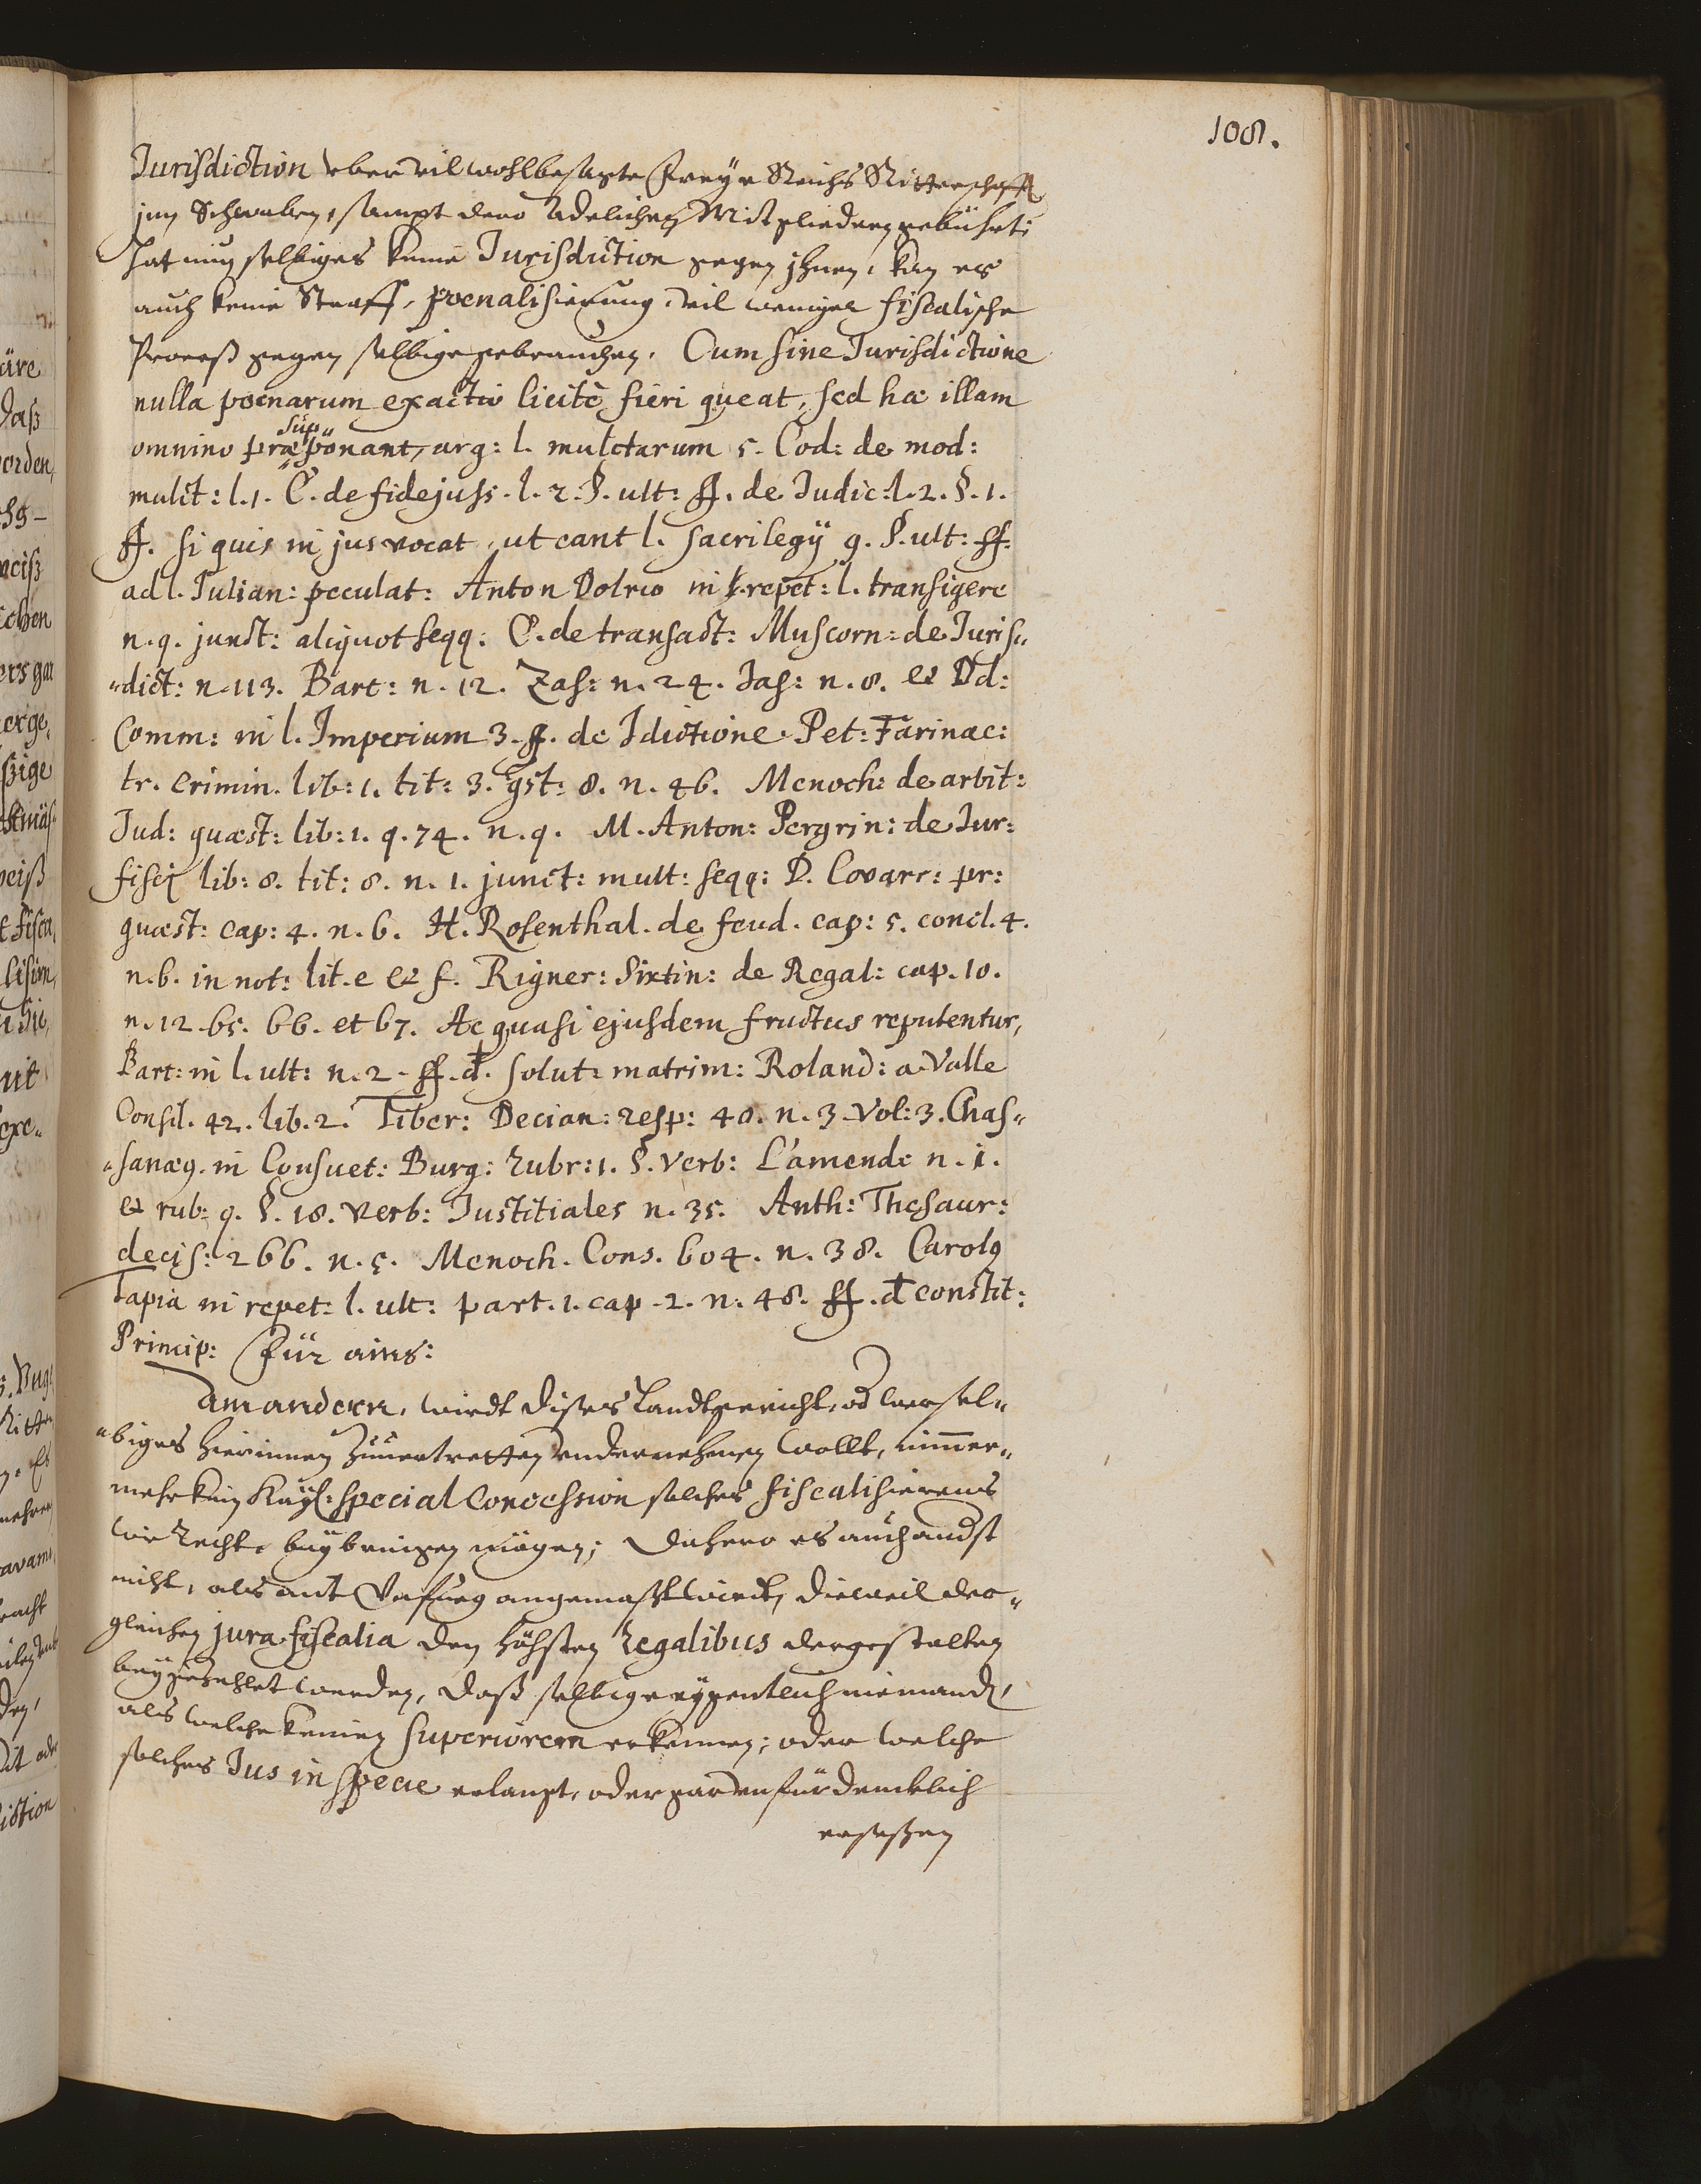 108.
Jurisdiction vber vil wohlbesagte Freÿe Reichs Ritterschafft
jnn Schwaben, sampt dero Adelichen Mitgliedern gebührt;
hat nun selbiges keine Jurisdiction gegen jhnen, kan es
auch keine Straff, poenalisierung, vil weniger fiscalische
Proceß gegen selbige gebrauchen. Cum sine Jurisdictione
nulla poenarum exactio licitè fieri queat, sed hæ illam
omnino præsupponant, arg: l. mulctarum 5. Cod: de mod:
mulct: l. 1. C. de fidejuss. l. 2. §. ult: ff. de Judic: l. 2. §. 1.
ff. si quis in jus vocat. ut cant l. sacrilegÿ 9. §. ult: ff.
ad l. Julian: peculat: Anton Dolrio in repet: l. transigere
n. 9. junct: aliquot seqq: C. de transact: Muscorn: de Juris„
„dict: n. 113. Bart: n. 12. Zas: n. 24. Jas: n. 8. et Dd:
Comm: in l. Imperium 3. ff. de Jdictione. Pet: Farinac:
tr. crimin. lib: 1. tit: 3. qst: 8. n. 46. Menoch: de arbit:
Jud: quæst: lib: 1. q. 74. n. 9. M. Anton: Pergrin: de Jur:
fiscj lib: 8. tit: 8. n. 1. junct: mult: seqq: D. Covarr: pr:
quæst: cap: 4. n. 6. H. Rosenthal. de feud. cap: 5. concl. 4.
n. 6. in not: lit. e et f. Rigner: Sixtin: de Regal: cap. 10.
n. 12. 65. 66. et 67. Ac quasi ejusdem fructus reputentur,
Bart: in l. ult: n. 2. ff. d. solut: matrim: Roland: a Valle
Consil. 42. lib. 2. Tiber: Decian: resp: 40. n. 3. Vol: 3. Chas„
„sanæ9. in Consuet: Burg: rubr: 1. §. verb: L'amende n. 1.
et rub: 9. §. 18. verb: Justitiales n. 35. Anth: Thesaur:
decis: 266. n. 5. Menoch. Cons. 604. n. 38. Carol9
Tapia in repet: l. ult: part. 1. cap. 2. n. 48. ff. d constit:
Princip: Für ains:
Am andern, wirdt dises Landtgericht, od wer sel„
„biges hierinnen zuuertretten vndernehmen wollt, nimmer„
mehr kein Kaÿs: special Concession solches fiscalisierens
wie Recht, beÿbringen mögen; Dahero es auch andst
nicht, als ant Vnfueg angemaßt wirdt, dieweil der„
gleichen jura fiscalia den höhsten Regalibus dergestalten
beÿgezehlet werden, daß selbige eÿgentlich niemand,
als welche keinen Superiorem erkennen; oder welche
solches Jus in specie erlangt, oder gar vnfürdencklich
ersessen